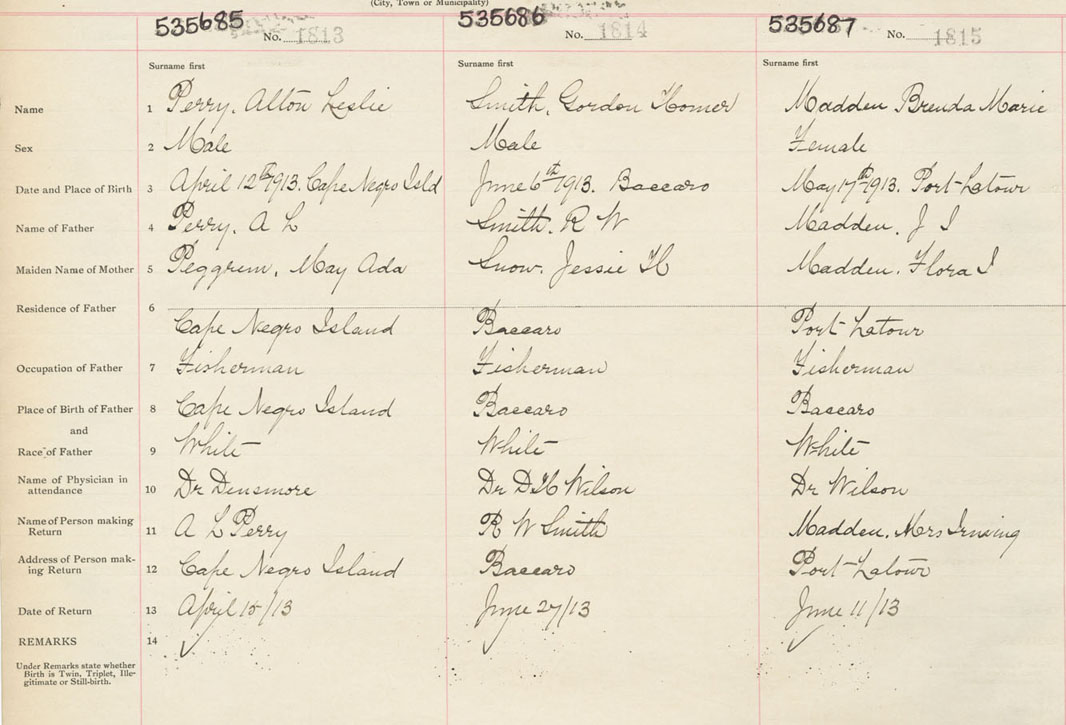 (City, Town or Municipality)
535685 No. 1813 535686 No. 1814 535687 No. 1815
Surname first Surname first Surname first
Name 1 Perry, Alton Leslie Smith, Gordon Homer Madden Brenda Marie
Sex 2 Male Male Female
Date and Place of Birth 3 April 12th 1913. Cape Negro Isld June 6th 1913. Baccaro May 17th 1913. Port-Latour
Name of Father 4 Perry. A L Smith. R W Madden. J I
Maiden Name of Mother 5 Peggrem, May Ada Snow. Jessie H Madden. Flora I
Residence of Father 6
Cape Negro Island Baccaro Port-Latour
Occupation of Father 7 Fisherman Fisherman Fisherman
Place of Birth of Father 8 Cape Negro Island Baccaro Baccaro
and
Race of Father 9 White White White
Name of Physician in
attendance 10 Dr Densmore Dr D H Wilson Dr Wilson
Name of Person making
Return 11 A L Perry R W Smith Madden, Mrs Irving
Address of Person mak-
ing Return 12 Cape Negro Island Baccaro Port-Latour
Date of Return 13 April 15/13 June 27/13 June 11/13
REMARKS 14 ✓ ✓ ✓
Under Remarks state whether
Birth is Twin, Triplet, Ille-
gitimate or Still-birth.